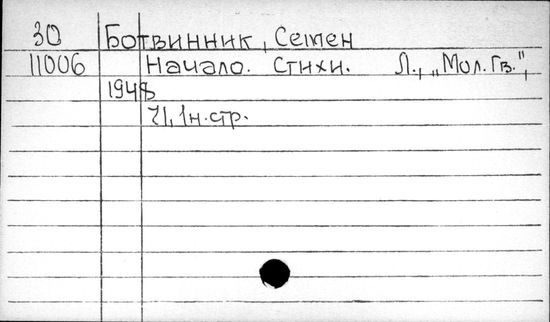 30 Ботвинник, Семен
11006 Начало. Стихи. Л., „Мол. Гв.",
1948
71, 1н. стр.